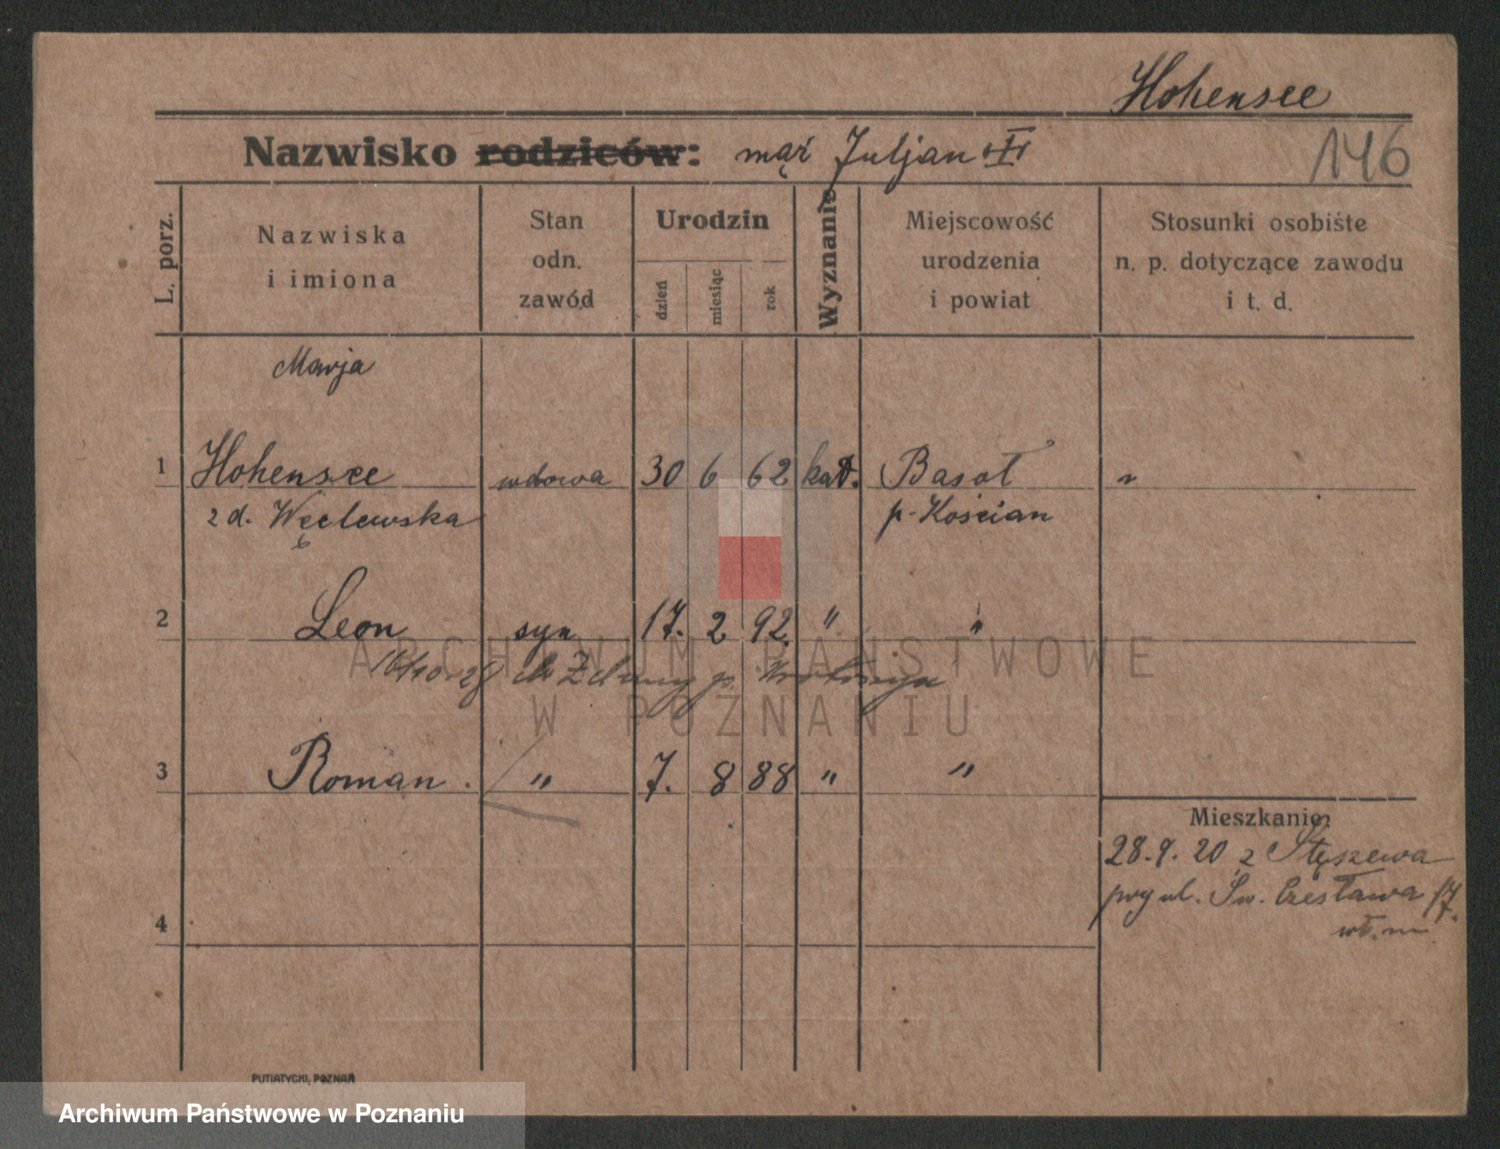 Hohensee
Nazwisko rodziców: mąż Juljan †
146
L. porz.
Nazwiska i imiona
Stan odn. zawód
Urodzin
dzień
miesiąc
rok
Wyznanie
Miejscowość urodzenia i powiat
Stosunki osobiste n. p. dotyczące zawodu i t. d.
Marja
1 Hohensee wdowa 30 6 62 kat. Basot
z d. Węclewska p. Kościan
2 Leon syn 17. 2 92 " "
16/10 28 do Zduny p.
3 Roman. " 7. 8 88 " "
Mieszkanie:
28.9.20 z Stęszewa
przy ul. Św. Czesława 17.
4
PUTIATYCKI, POZNAŃ
ARCHIWUM PAŃSTWOWE
W POZNANIU
Archiwum Państwowe w Poznaniu